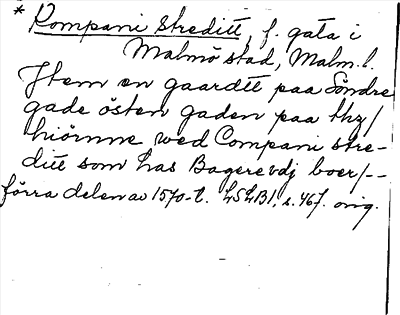 * Kompani streditt, f. gata i
Malmö stad, Malm. l.
Jtem en gaardtt paa Söndre
gade östen gaden paa thz/
hiörnne wed Compani stre-
ditt som has Bagerevdj boer/--
förra delen av 1570-t. LSLB1, s. 467. orig.